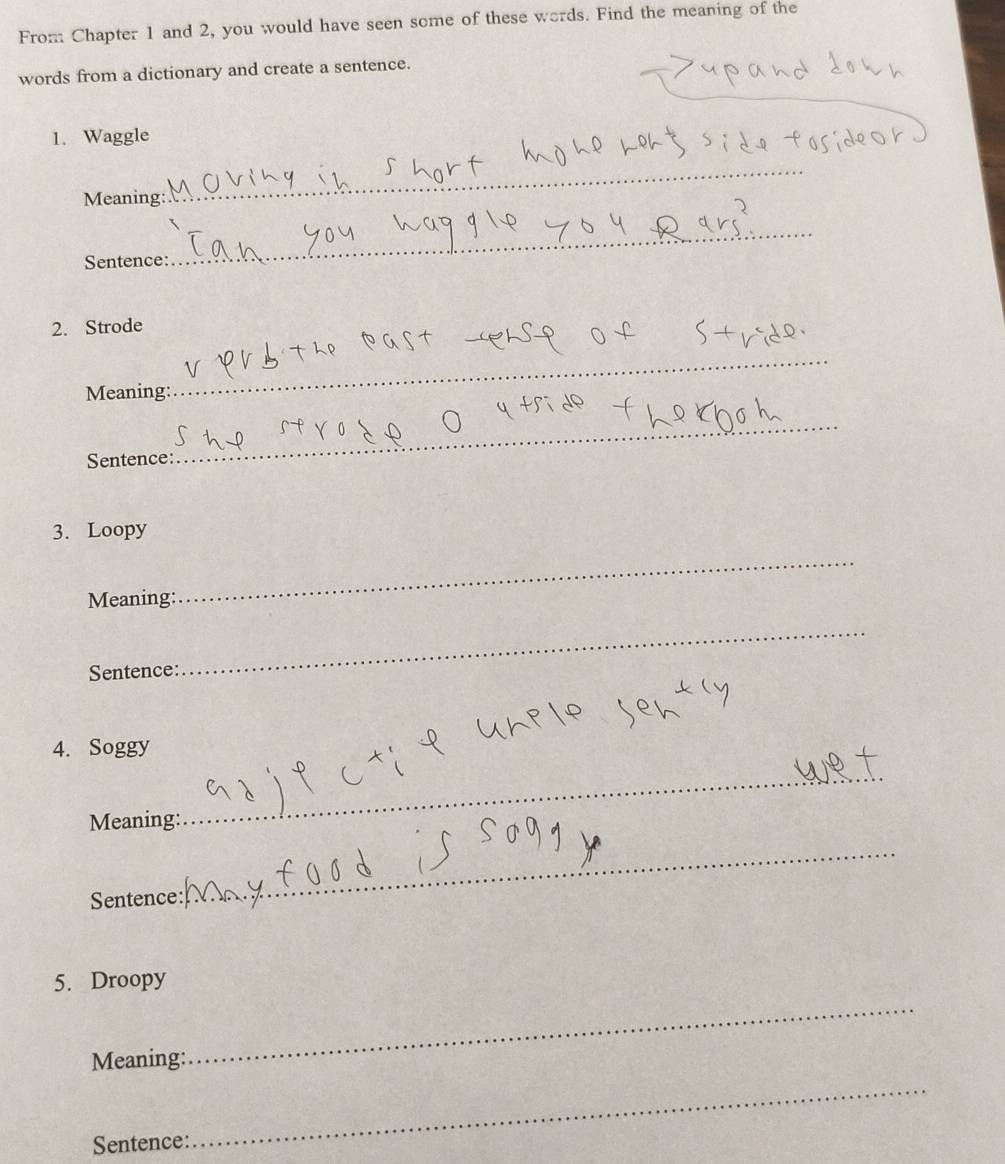 From Chapter 1 and 2, you would have seen some of these words. Find the meaning of the
words from a dictionary and create a sentence.
→up and down
1. Waggle
Meaning: Moving in short movements side to side or
Sentence: Can you waggle you ears?
2. Strode
Meaning: verb the past tense of stride.
Sentence: She strode outside the room
3. Loopy
Meaning:
Sentence:
4. Soggy
Meaning: adjectie unplesently wet
Sentence: my food is soggy
5. Droopy
Meaning:
Sentence: